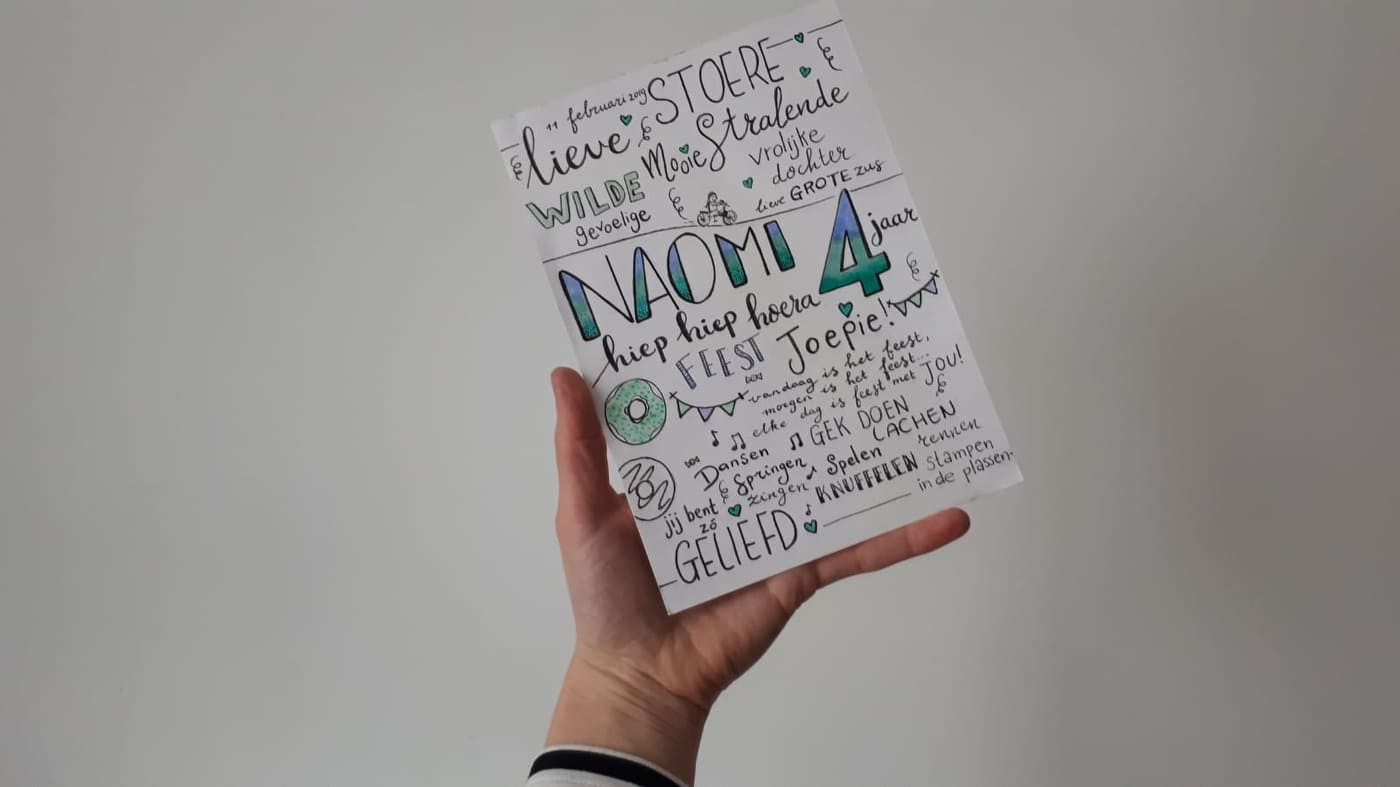 11 februari 2019
lieve STOERE
Mooie Stralende
WILDE vrolijke
gevoelige dochter
lieve GROTE zus
NAOMI 4 jaar
hiep hiep hoera
FEEST Joepie!
vandaag is het feest,
morgen is het feest...
elke dag is feest met JOU!
Dansen GEK DOEN
Springen Spelen LACHEN
zingen KNUFFELEN rennen
stampen
in de plassen.
jij bent
zó
GELIEFD